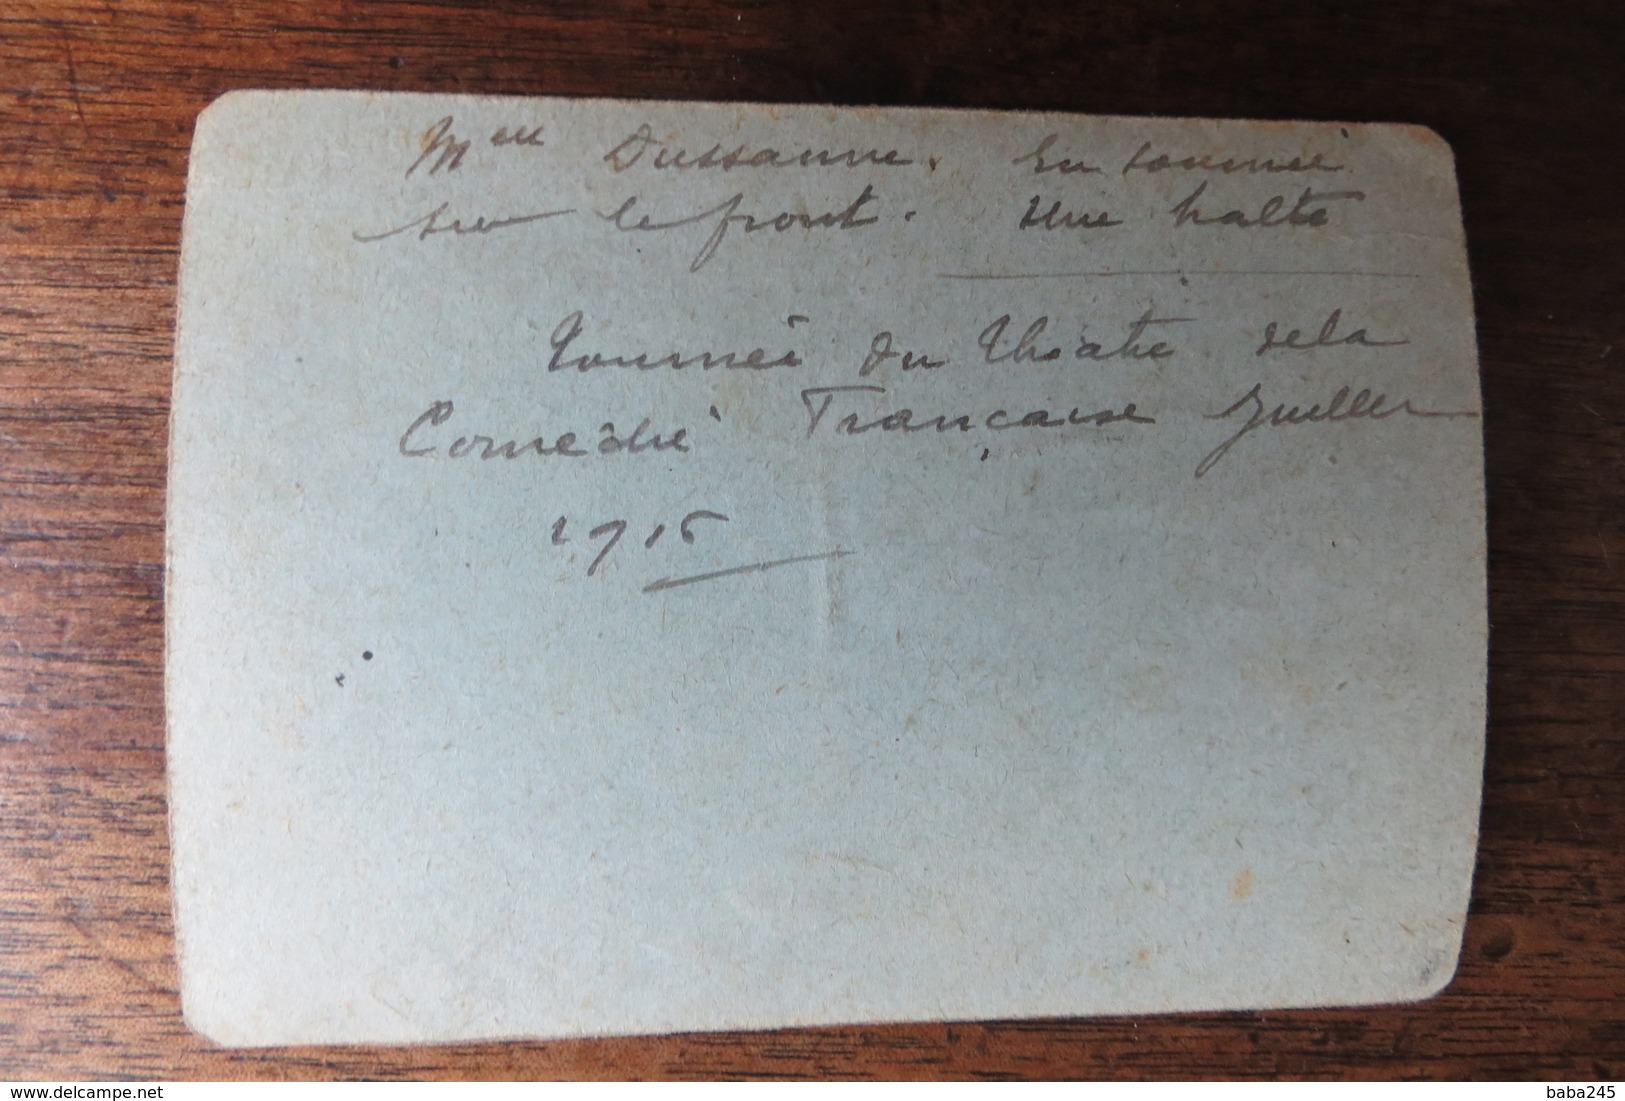 Melle Dussanne. En tournée
sur le front. Une halte
Tournée du Théatre de la
Comédie Française Juillet
1916
baba245